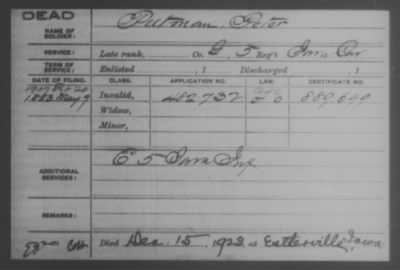 DEAD
NAME OF SOLDIER: Putman, Peter
SERVICE: Late rank, Co. E, 5 Reg't Iowa Cav
TERM OF SERVICE: Enlisted , 1 Discharged , 1
DATE OF FILING. CLASS. APPLICATION NO. LAW. CERTIFICATE NO.
1907
1883 May 7 Invalid, 482,732 889,699
Widow,
Minor,
ADDITIONAL SERVICES: E 5 Iowa Inf
REMARKS:
Died Dec. 15, 1923, at Estherville, Iowa